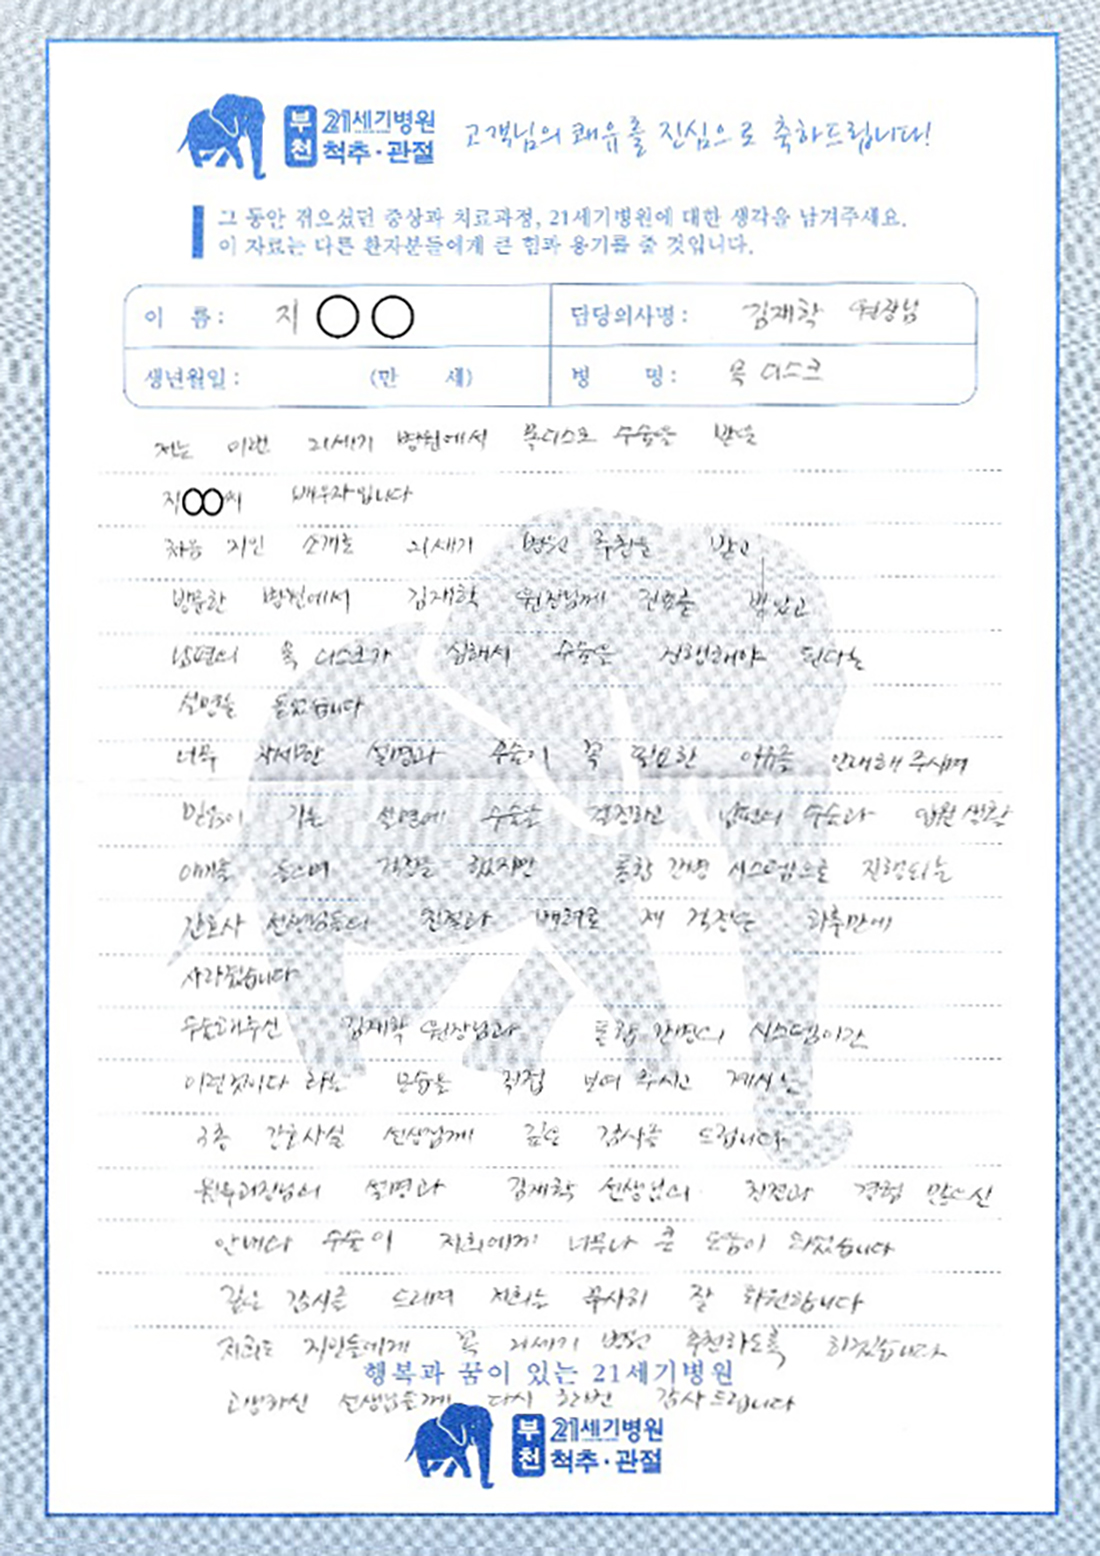 부천 21세기병원 척추·관절 고객님의 쾌유를 진심으로 축하드립니다!
그 동안 겪으셨던 증상과 치료과정, 21세기병원에 대한 생각을 남겨주세요.
이 자료는 다른 환자분들에게 큰 힘과 용기를 줄 것입니다.
이 름: 지○○ 담당의사명: 김재학 원장님
생년월일: (만 세) 병 명: 목 디스크
저는 이번 21세기 병원에서 목디스크 수술을 받은
지○○씨 배우자입니다
처음 지인 소개로 21세기 병원 추천을 받고
방문한 병원에서 김재학 원장님께 진료를 받았고
남편의 목 디스크가 심해서 수술을 진행해야 된다는
설명을 들었습니다
너무 자세한 설명과 수술이 꼭 필요한 이유를 안내해 주시며
믿음이 가는 설명에 수술을 결정하고 남편의 수술과 입원 생활
얘기를 들으며 걱정을 했지만 통합 간병 시스템으로 진행되는
간호사 선생님들의 친절과 배려로 제 걱정은 하루만에
사라졌습니다
수술해주신 김재학 원장님과 통합 간병의 시스템이란
이런것이다 라는 모습을 직접 보여 주시고 계시는
3층 간호사실 선생님께 깊은 감사를 드립니다
원무과장님의 설명과 김재학 선생님의 친절과 경험 많으신
안내와 수술이 저희에게 너무나 큰 도움이 되었습니다
깊은 감사를 드리며 저희는 무사히 잘 퇴원합니다
저희도 지인들에게 꼭 21세기 병원 추천하도록 하겠습니다
행복과 꿈이 있는 21세기병원
고생하신 선생님들께 다시 한번 감사드립니다
부천 21세기병원 척추·관절